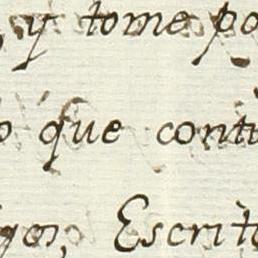 y tome po
o que conti
gos, Escrito